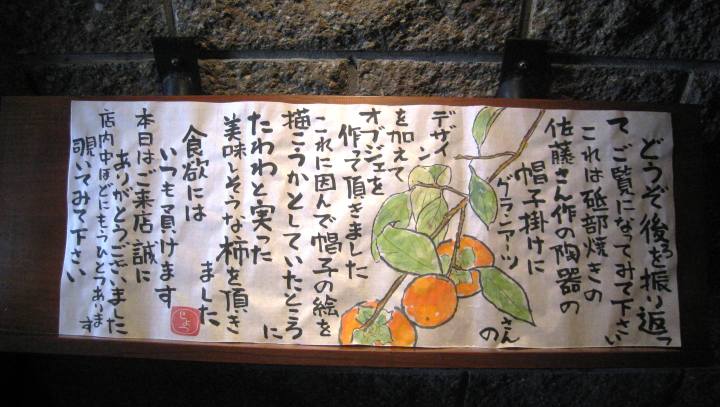 どうぞ後ろを振り返っ
てご覧になてみて下さい
これは砥部焼きの
佐藤さん作の陶器の
帽子掛けに
グランアーツさんの
デザイン
を加えて
オブジェを
作って頂きました
これに因んで帽子の絵を
描こうかとしていたところに
たわわと実った
美味しそうな柿を頂き
ました
食欲には
いつも負けます
本日はご来店誠に
ありがとうございました
店内中ほどにもうひとつあります
覗いてみて下さい